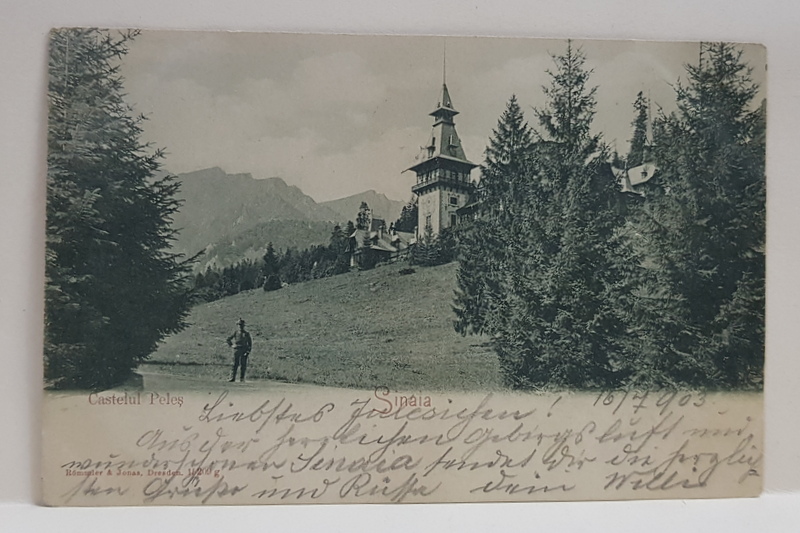 Castelul Peleș
Sinaia
Liebstes ! 16/7 903
Aus der herrlichen Gebirgsluft und
wunderschönen Sinaia sendet Dir die herzlich
sten Grüße und Küsse dein Willi
Römmler & Jonas, Dresden.